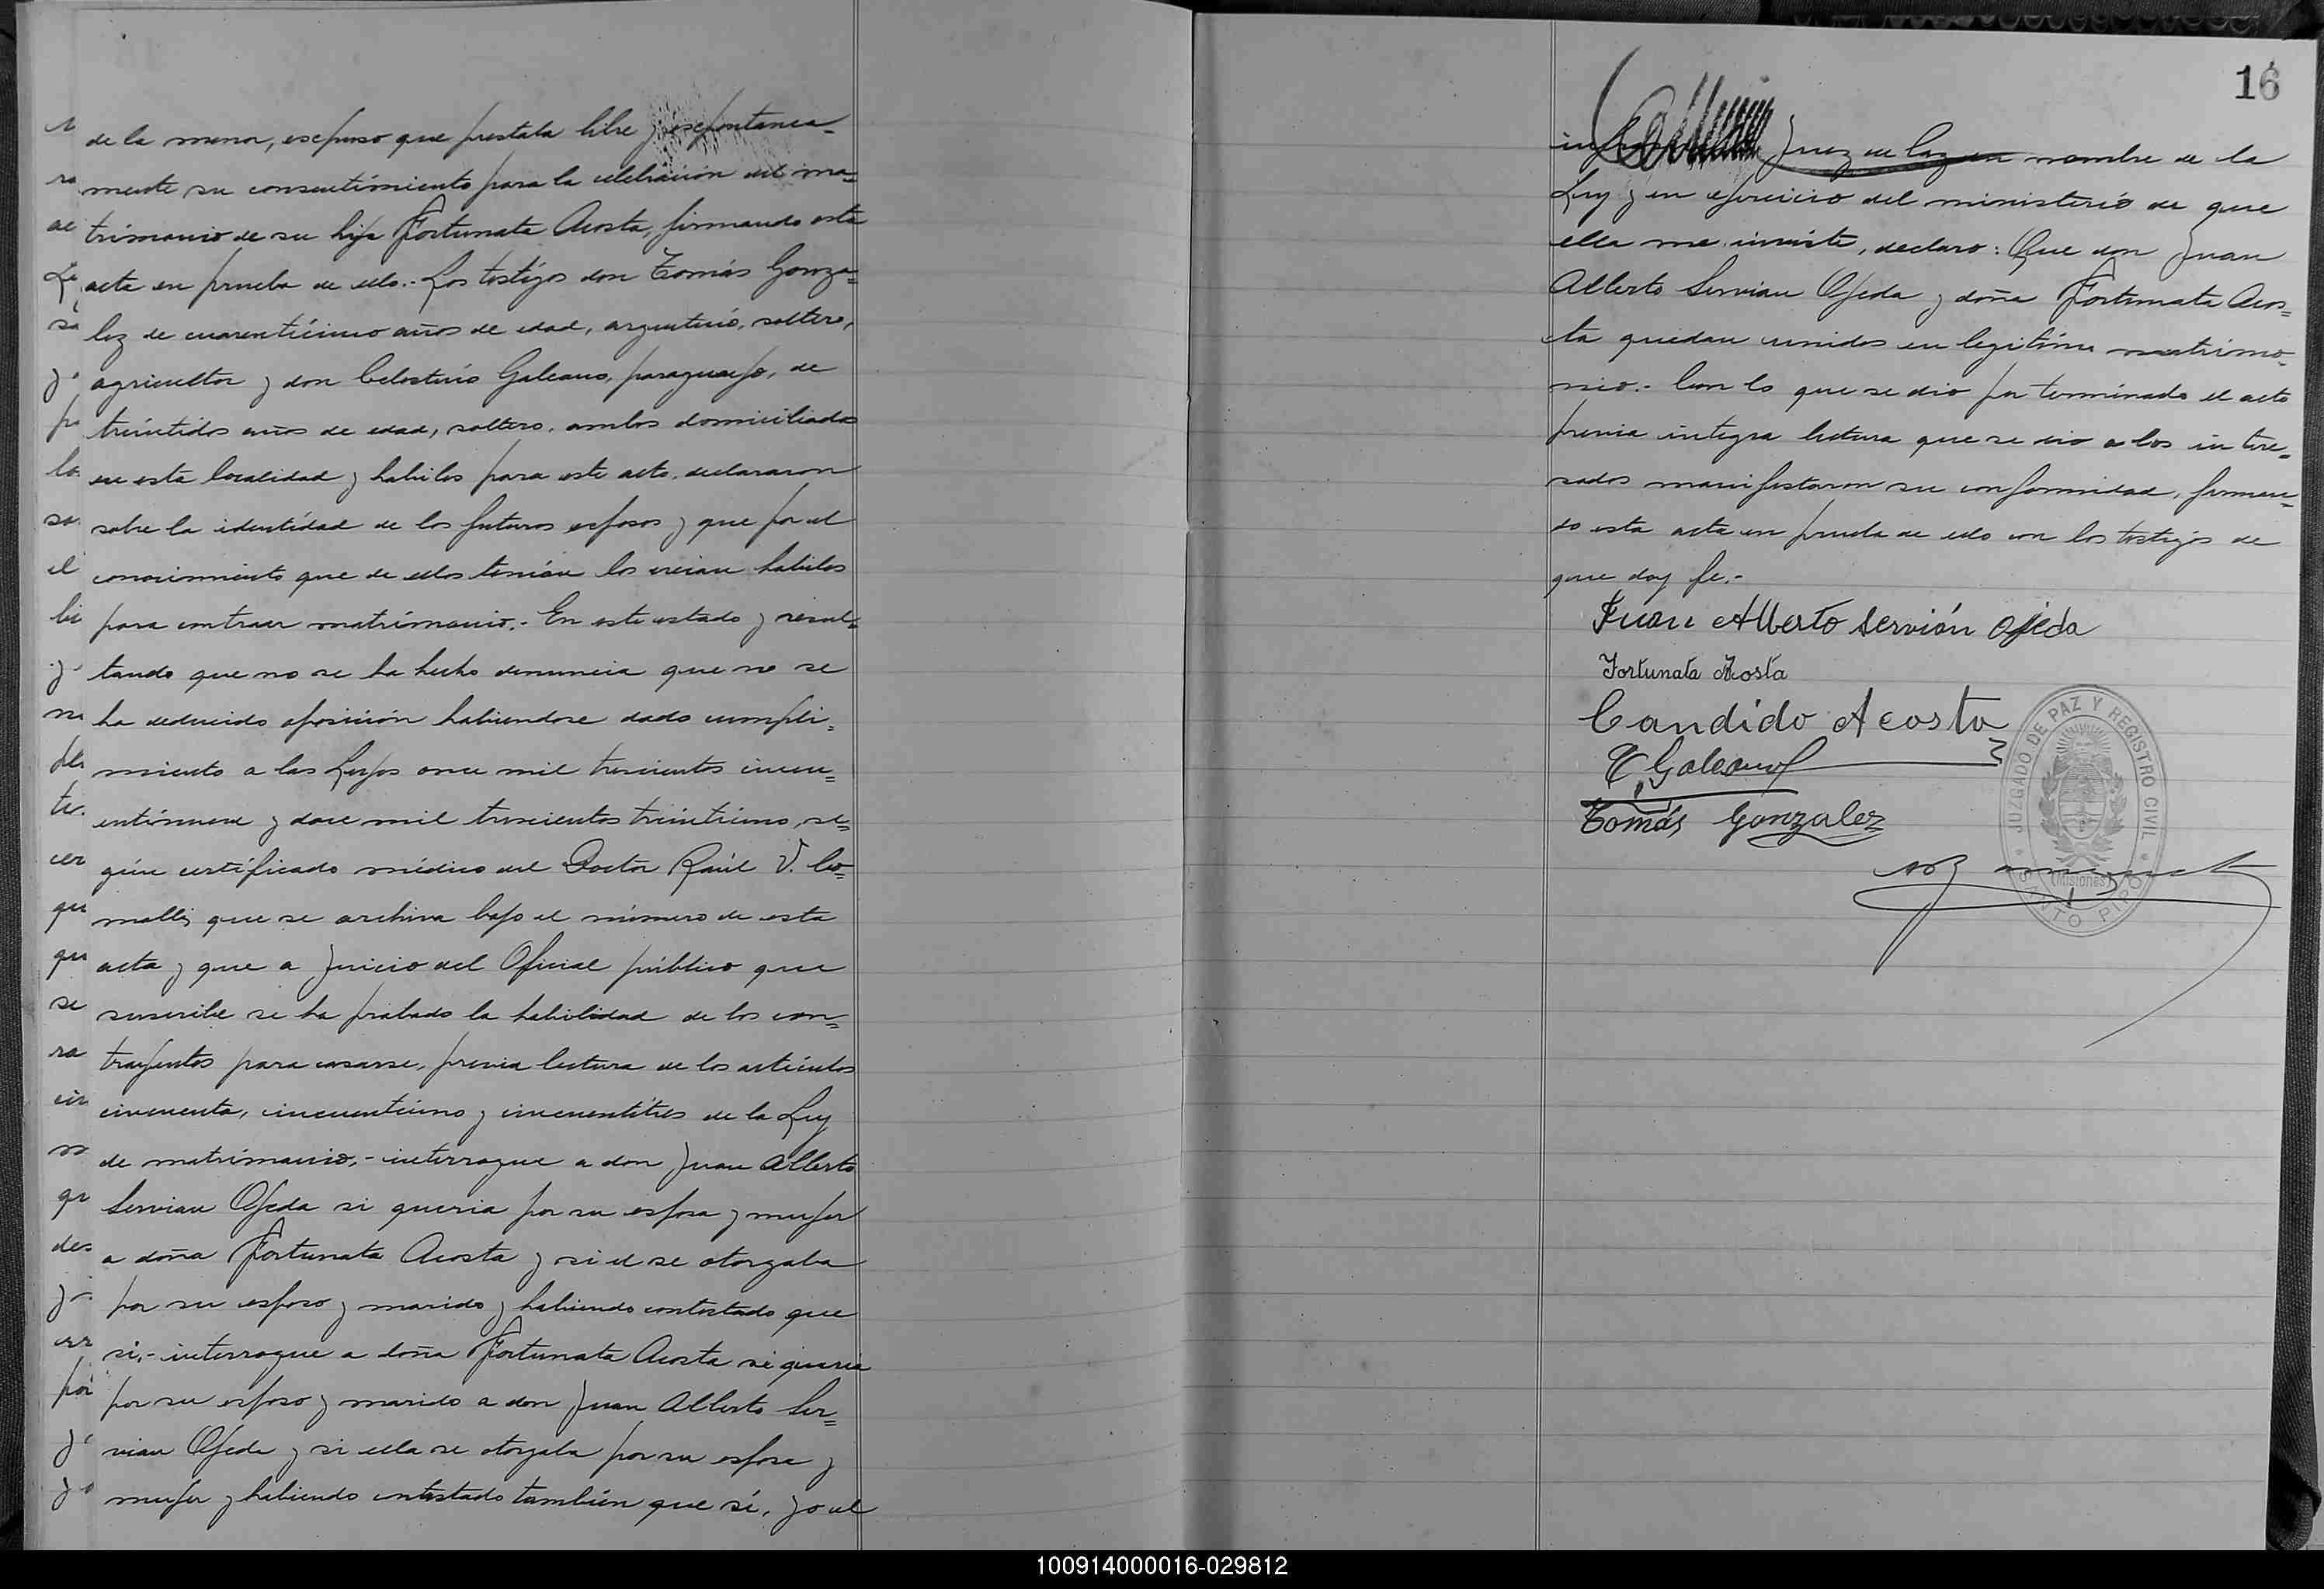 de la menor, escpuso que prestaba libre y escpontanea=
mente su consentimiento para la celebración del ma=
trimonio de su hija Fortunata Acosta, firmando esta
acta en prueba de ello.- Los testigos don Tomás Gonza=
lez de cuarenticinco años de edad, argentino, soltero,
agricultor y don Celestino Galeano, paraguayo, de
treintidos años de edad, soltero, ambos domiciliados
en esta localidad y habiles para este acto, declararon
sobre la identidad de los futuros esposos y que por el
conocimiento que de ellos tenian los creian habiles
para contraer matrimonio.- En este estado y resul=
tando que no se ha hecho denuncia que no se
ha deducido oposición habiendose dado cumpli=
miento a las Leyes once mil trescientos cincu=
entinueve y doce mil trescientos treintiuno, se=
gún certificado médico del Doctor Raúl V.
que se archiva bajo el número de esta
acta y que a juicio del Oficial público que
suscribe se ha probado la habilidad de los con=
trayentes para casarse, previa lectura de los artículos
cincuenta, cincuentiuno y cincuentitres de la Ley
de matrimonio,- interrogue a don Juan Alberto
Servian Ojeda si queria por su esposa y mujer
a doña Fortunata Acosta y si el se otorgaba
por su esposo y marido y habiendo contestado que
si,- interrogue a doña Fortunata Acosta si queria
por su esposo y marido a don Juan Alberto Ser=
vian Ojeda y si ella se otorgaba por su esposa y
mujer y habiendo contestado también que sí, yo el
16
Juez de Paz en nombre de la
Ley y en ejercicio del ministerio de que
ella me inviste, declaro: Que don Juan
Alberto Servian Ojeda y doña Fortunata Acos=
ta quedan unidos en legitimo matrimo=
nio.- Con lo que se dio por terminado el acto
previa integra lectura que se dio a los intere=
sados manifestaron su conformidad, firman=
do esta acta en prueba de ello con los testigos de
que doy fe.-
Juan Alberto Servián Ojeda
Fortunata Acosta
Candido Acosta
C. Galeano
Tomás Gonzalez
JUZGADO DE PAZ Y REGISTRO CIVIL
(Misiones)
SANTO PIPO
100914000016-029812